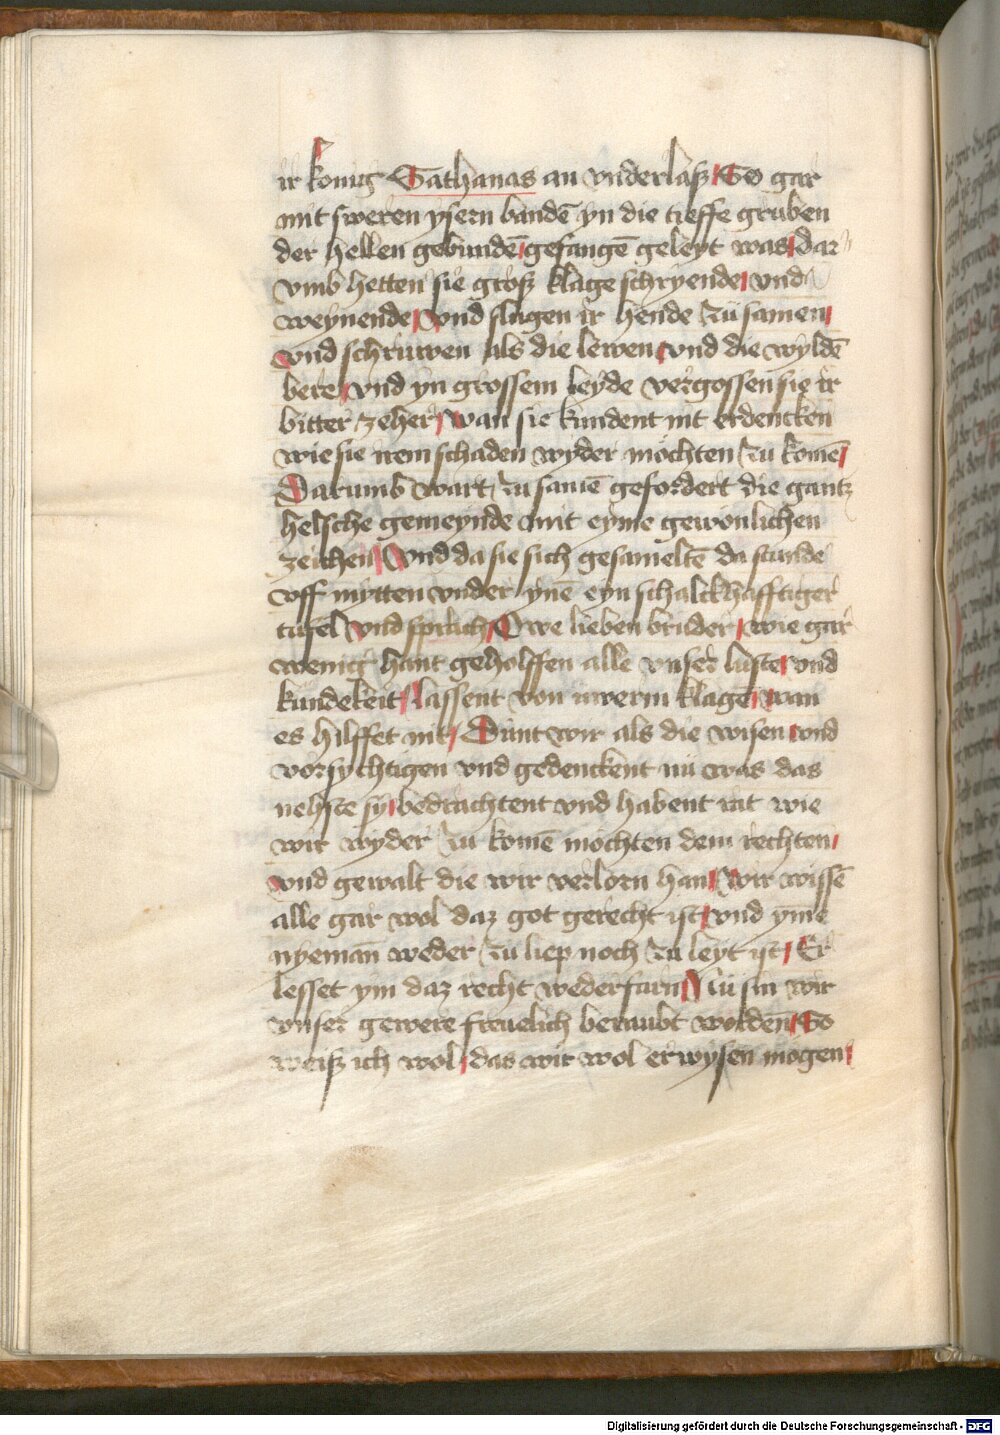 ir konig Sathanas an vnderlaß / So gar
mit sweren ysern bandē yn die tieffe gruben
der hellen gebundē / gefangē geleyt was / dar
vmb hetten sie groß klage schryende / vnd
weynende / vnd slugen ir hende zu samen /
vnd schruwen als die lewen / vnd die wyldē
bere / vnd yn grossem leyde vergossen sie ir
bitter zeher / wan sie kundent nit erdencken
wie sie irem schaden wyder mochten zu komē /
Darumb wart zu samē gefordert die gantz
helsche gemeynde mit eyme gewonlichen
zeichen / Vnd da sie sich gesameltē da stunde
vff mytten vnder ynē eyn schalckhafftiger
tufel vnd sprach / Owe lieben bruder / wie gar
wenig hant geholffen alle vnser luste / vnd
kundekeit / lassent von uwerm klagē / wan
es hilffet nit / Dunt wir als die wisen / vnd
vorsychtigen vnd gedenckent nu was das
nehste sy / bedrachtent vnd habent rat wie
wir wyder zu komē mochten dem rechten /
vnd gewalt die wir verlorn han / Wir wissē
alle gar wol daz got gerecht ist / vnd yme
nyeman weder zu liep noch zu leyt ist / Er
lesset ym daz recht wederfarn / Nu sin wir
vnser gewere freuelich beraubt wordē / So
weiß ich wol / das wir wol erwysen mogen /
Digitalisierung gefördert durch die Deutsche Forschungsgemeinschaft - DFG